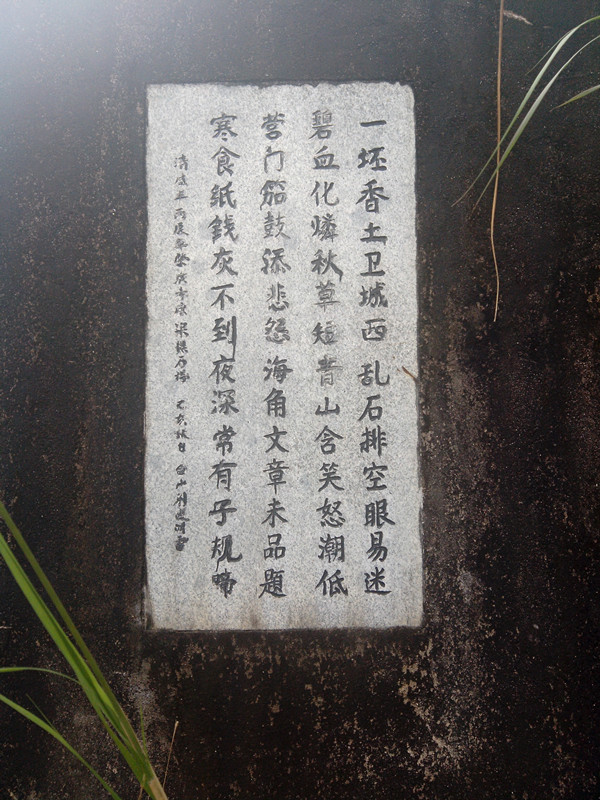 一坯香土卫城西 乱石排空眼易迷
碧血化燐秋草短 青山含笑怒潮低
营门笳鼓添悲怨 海角文章未品題
寒食纸錢灰不到 夜深常有子规啼
清咸丰丙辰 乙亥秋日 台山